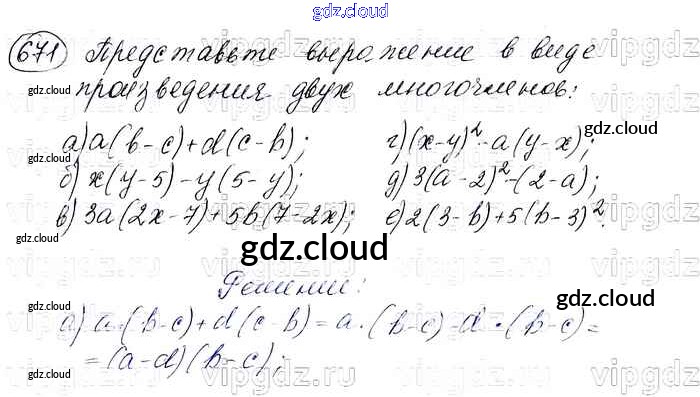 gdz.cloud
671 Представьте выражение в виде
gdz.cloud
произведения двух многочленов:
gdz.cloud
а) a(b-c)+d(c-b); г) (x-y)²-a(y-x);
gdz.cloud
б) x(y-5)-y(5-y); д) 3(a-2)²-(2-a);
gdz.cloud
в) 3a(2x-7)+5b(7-2x); е) 2(3-b)+5(b-3)².
gdz.cloud
gdz.cloud
gdz.cloud
Решение:
gdz.cloud
gdz.cloud
а) a·(b-c)+d(c-b)=a·(b-c)-d·(b-c)=
=(a-d)(b-c);
gdz.cloud
vipgdz.ru